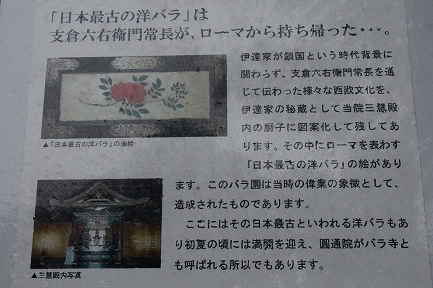 「日本最古の洋バラ」は
支倉六右衛門常長が、ローマから持ち帰った・・・。
伊達家が鎖国という時代背景に
関わらず、支倉六右衛門常長を通
じて伝わった様々な西欧文化を、
伊達家の秘蔵として当院三慧殿
内の厨子に図案化して残してあ
ります。その中にローマを表わす
『日本最古の洋バラ』の絵があり
ます。このバラ園は当時の偉業の象徴として、
造成されたものであります。
ここにはその日本最古といわれる洋バラもあ
り初夏の頃には満開を迎え、圓通院がバラ寺と
も呼ばれる所以でもあります。
▲「日本最古の洋バラ」の油絵
▲三慧殿内写真